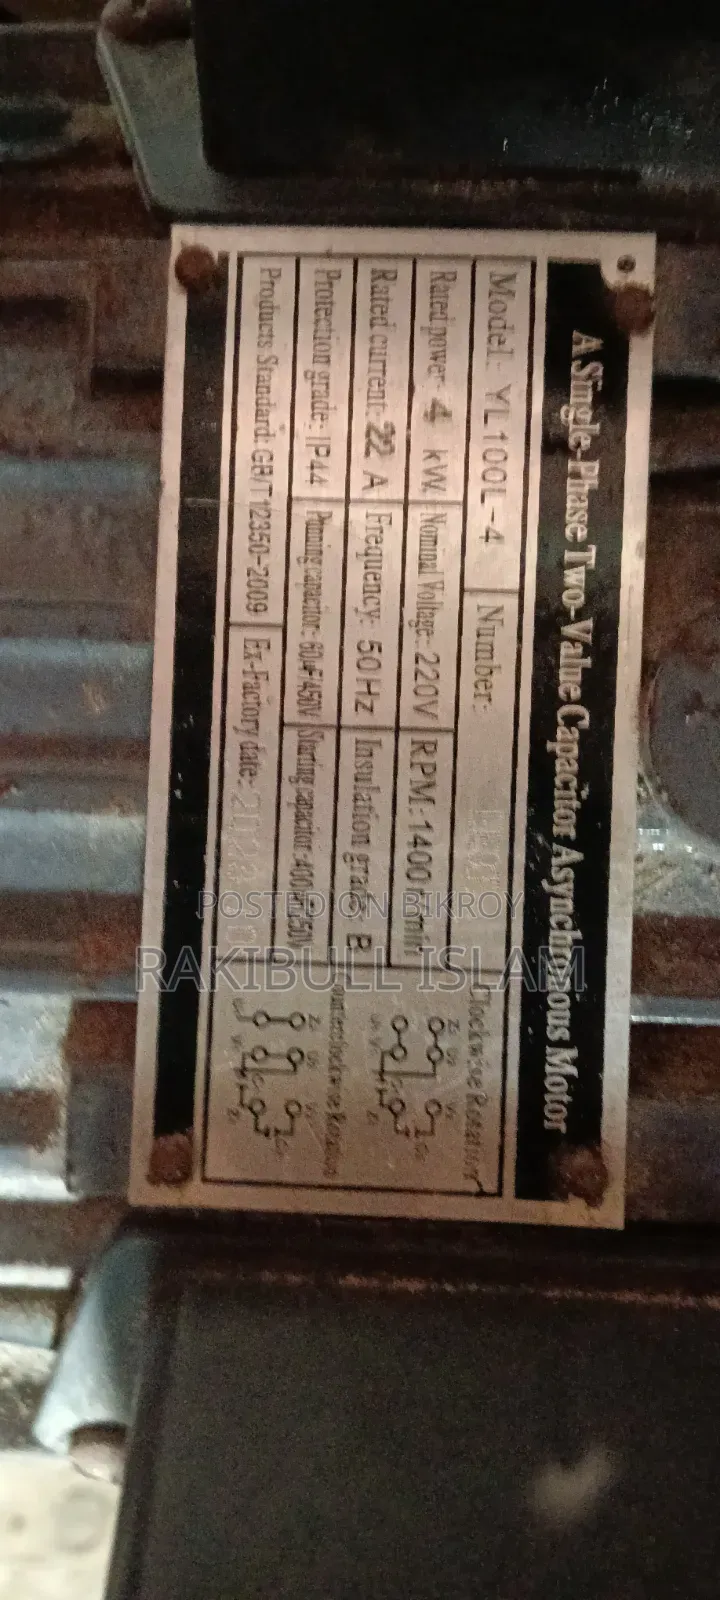 A Single-Phase Two-Value Capacitor Asynchronous Motor
Model: YL100L-4 Number:
Rated power: 4 kW Nominal Voltage: 220V RPM: 1400 r/min
Rated current: 22 A Frequency: 50Hz Insulation grade: B
Protection grade: IP44 Running capacitor: 60μF/450V Starting capacitor: 400μF/250V
Products Standard: GB/T12350-2009 Ex-Factory date:
Clockwise Rotation
Z2 U2 V1
Counterclockwise Rotation
Z2 U2 V1
POSTED ON BIKROY
RAKIBULL ISLAM